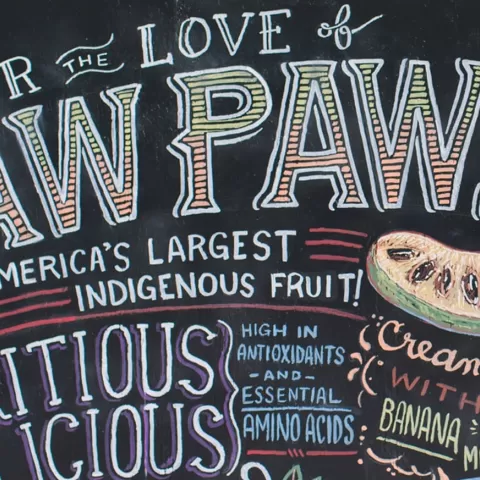 R THE LOVE of
AW PAW
MERICA'S LARGEST
INDIGENOUS FRUIT!
ITIOUS
ICIOUS
HIGH IN
ANTIOXIDANTS
-AND-
ESSENTIAL
AMINO ACIDS
Cream
WITH
BANANA
M